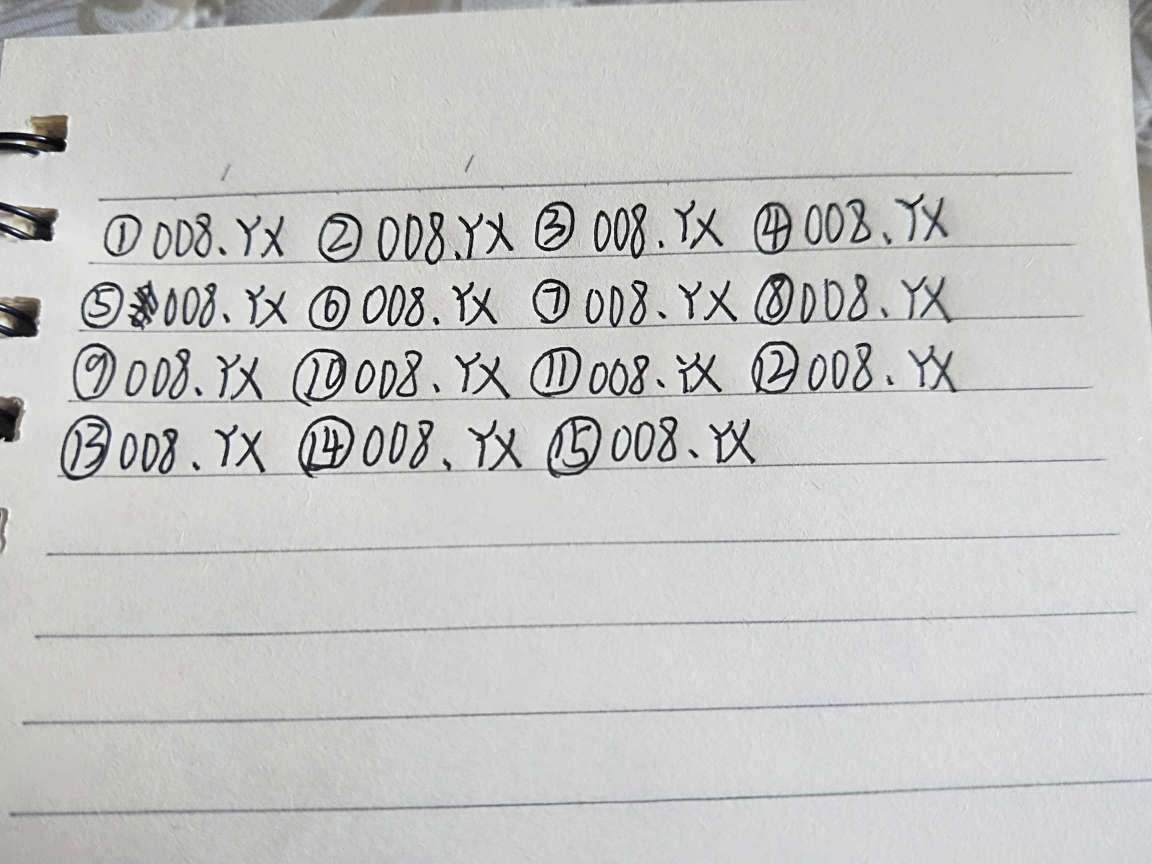 ①008.YX ②008.YX ③008.YX ④008.YX
⑤008.YX ⑥008.YX ⑦008.YX ⑧008.YX
⑨008.YX ⑩008.YX ⑪008.YX ⑫008.YX
⑬008.YX ⑭008.YX ⑮008.YX